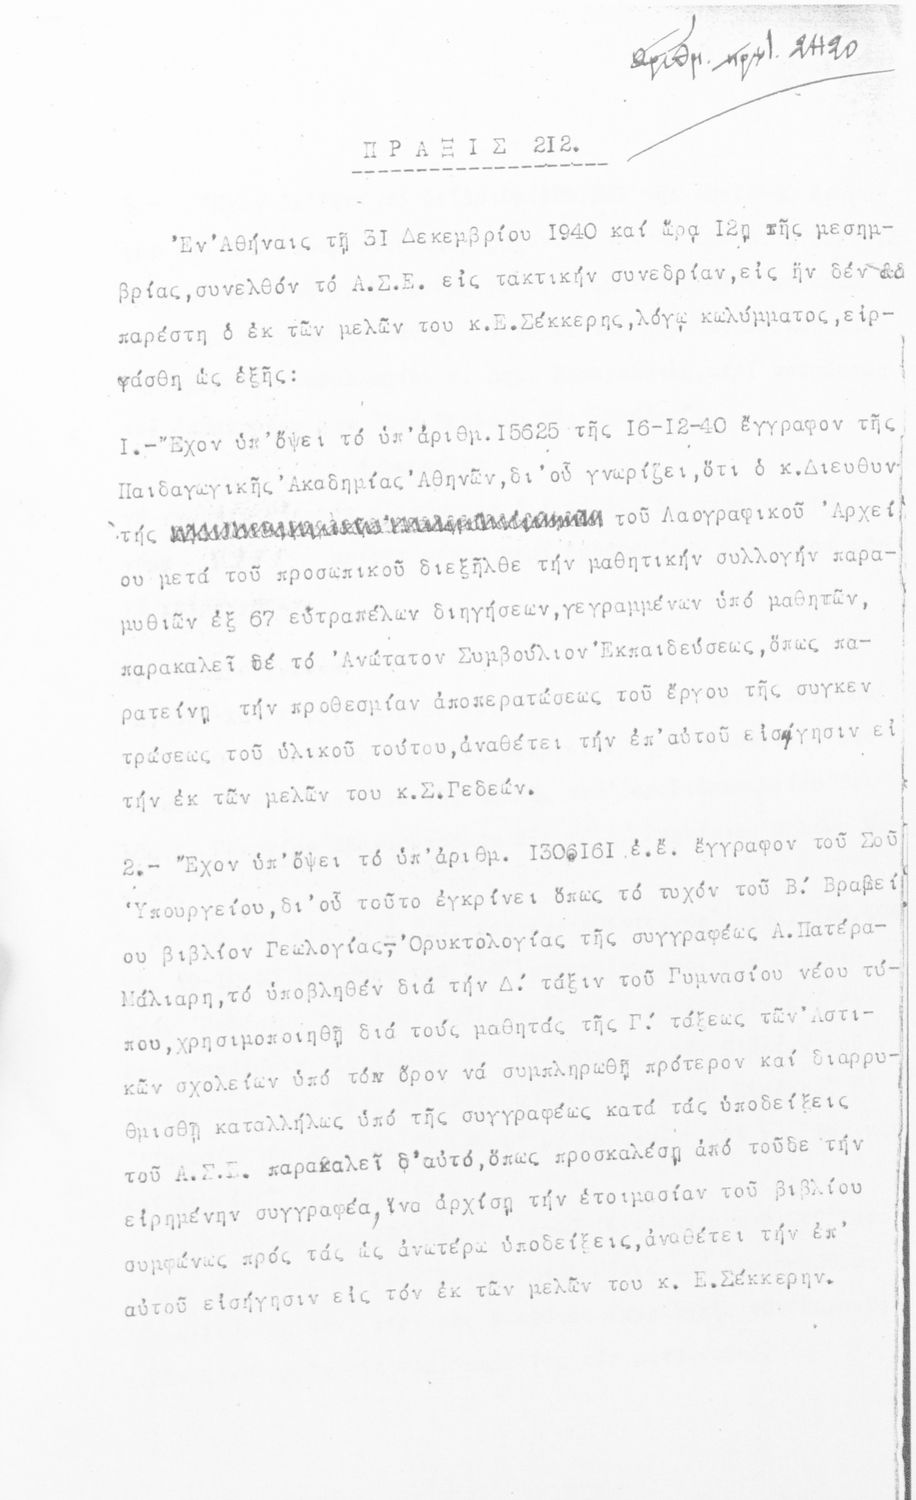 ἀριθμ. πρωτ. 2420
Π Ρ Α Ξ Ι Σ 2I2.
Ἐν Ἀθήναις τῇ 3I Δεκεμβρίου I940 καί ὥρᾳ I2ῃ τῆς μεσημ-
βρίας,συνελθόν τό Α.Σ.Ε. εἰς τακτικήν συνεδρίαν,εἰς ἥν δέν
παρέστη ὁ ἐκ τῶν μελῶν του κ.Ε.Σέκκερης,λόγῳ κωλύμματος,εἰρ-
γάσθη ὡς ἑξῆς:
I.-Ἔχον ὑπ'ὄψει τό ὑπ'ἀριθμ.I5625 τῆς I6-I2-40 ἔγγραφον τῆς
Παιδαγωγικῆς Ἀκαδημίας Ἀθηνῶν,δι'οὗ γνωρίζει,ὅτι ὁ κ.Διευθυν-
τής τοῦ Λαογραφικοῦ Ἀρχεί
ου μετά τοῦ προσωπικοῦ διεξῆλθε τήν μαθητικήν συλλογήν παρα-
μυθιῶν ἐξ 67 εὐτραπέλων διηγήσεων,γεγραμμένων ὑπό μαθητῶν,
παρακαλεῖ δέ τό Ἀνώτατον Συμβούλιον Ἐκπαιδεύσεως,ὅπως πα-
ρατείνῃ τήν προθεσμίαν ἀποπερατώσεως τοῦ ἔργου τῆς συγκεν
τρώσεως τοῦ ὑλικοῦ τούτου,ἀναθέτει τήν ἐπ'αὐτοῦ εἰσήγησιν εἰ
τήν ἐκ τῶν μελῶν του κ.Σ.Γεδεών.
2.- Ἔχον ὑπ'ὄψει τό ὑπ'ἀριθμ. I306I6I ἐ.ἔ. ἔγγραφον τοῦ Σοῦ
Ὑπουργείου,δι'οὗ τοῦτο ἐγκρίνει ὅπως τό τυχόν τοῦ Β.΄ Βραβεί
ου βιβλίον Γεωλογίας-Ὀρυκτολογίας τῆς συγγραφέως Α.Πατέρα-
Μάλιαρη,τό ὑποβληθέν διά τήν Δ.΄ τάξιν τοῦ Γυμνασίου νέου τύ-
που,χρησιμοποιηθῇ διά τούς μαθητάς τῆς Γ.΄ τάξεως τῶν Ἀστι-
κῶν σχολείων ὑπό τόν ὅρον νά συμπληρωθῇ πρότερον καί διαρρυ-
θμισθῇ καταλλήλως ὑπό τῆς συγγραφέως κατά τάς ὑποδείξεις
τοῦ Α.Σ.Σ. παρακαλεῖ δ'αὐτό,ὅπως προσκαλέσῃ ἀπό τοῦδε τήν
εἰρημένην συγγραφέα,ἵνα ἀρχίσῃ τήν ἑτοιμασίαν τοῦ βιβλίου
συμφώνως πρός τάς ὡς ἀνωτέρω ὑποδείξεις,ἀναθέτει τήν ἐπ'
αὐτοῦ εἰσήγησιν εἰς τόν ἐκ τῶν μελῶν του κ. Ε.Σέκκερην.